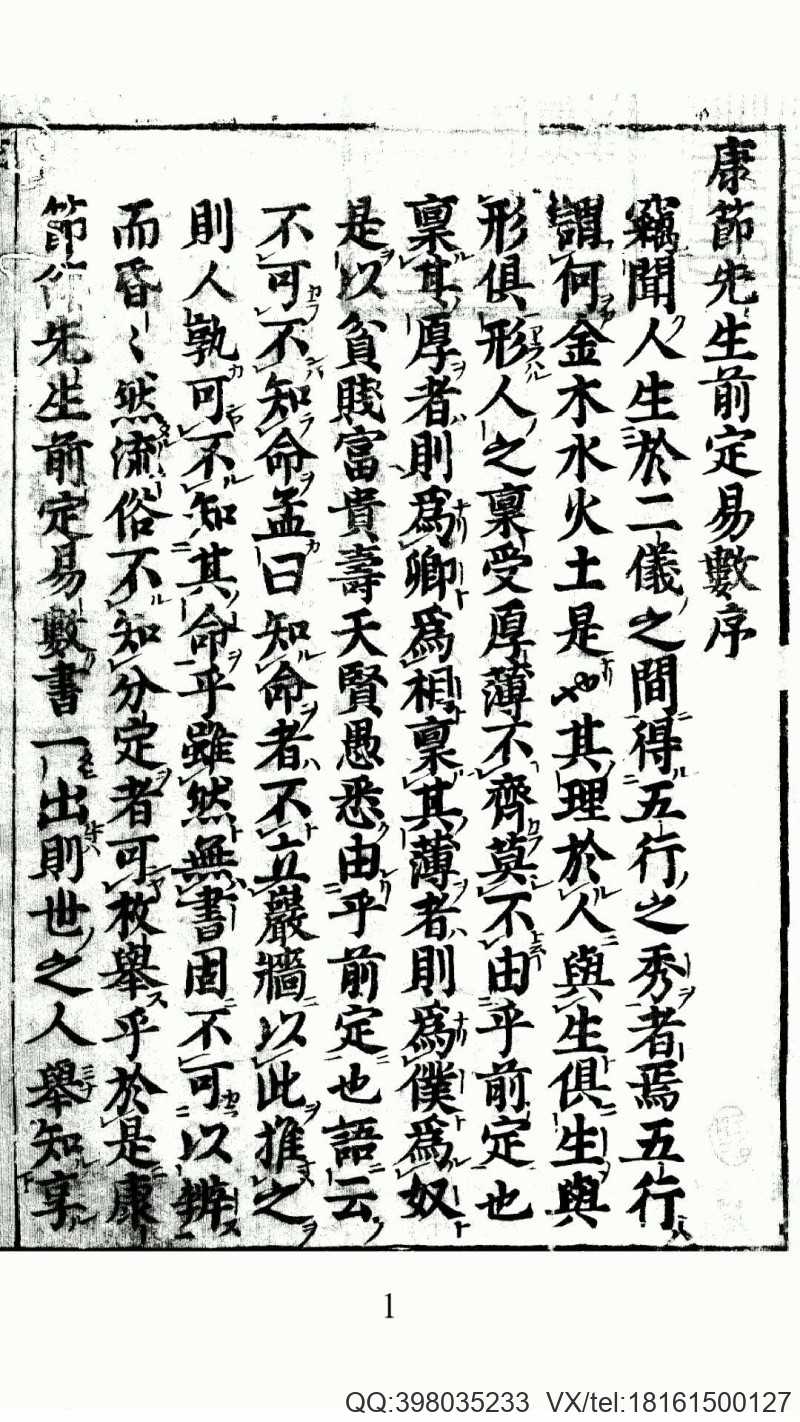 康節先生前定易數序
竊聞人生於二儀之間得五行之秀者焉五行
謂何金木水火土是也其理於人與生俱生與
形俱形人之稟受厚薄不齊莫不由乎前定也
稟其厚者則爲卿爲相稟其薄者則爲僕爲奴
是以貧賤富貴壽夭賢愚悉由乎前定也語云
不可不知命孟曰知命者不立巖牆以此推之
則人孰可不知其命乎雖然無書固不可以辨
而昏〻然流俗不知分定者可枚舉乎於是康
節先生前定易數書一出則世之人舉知享
1
QQ:398035233 VX/tel:18161500127